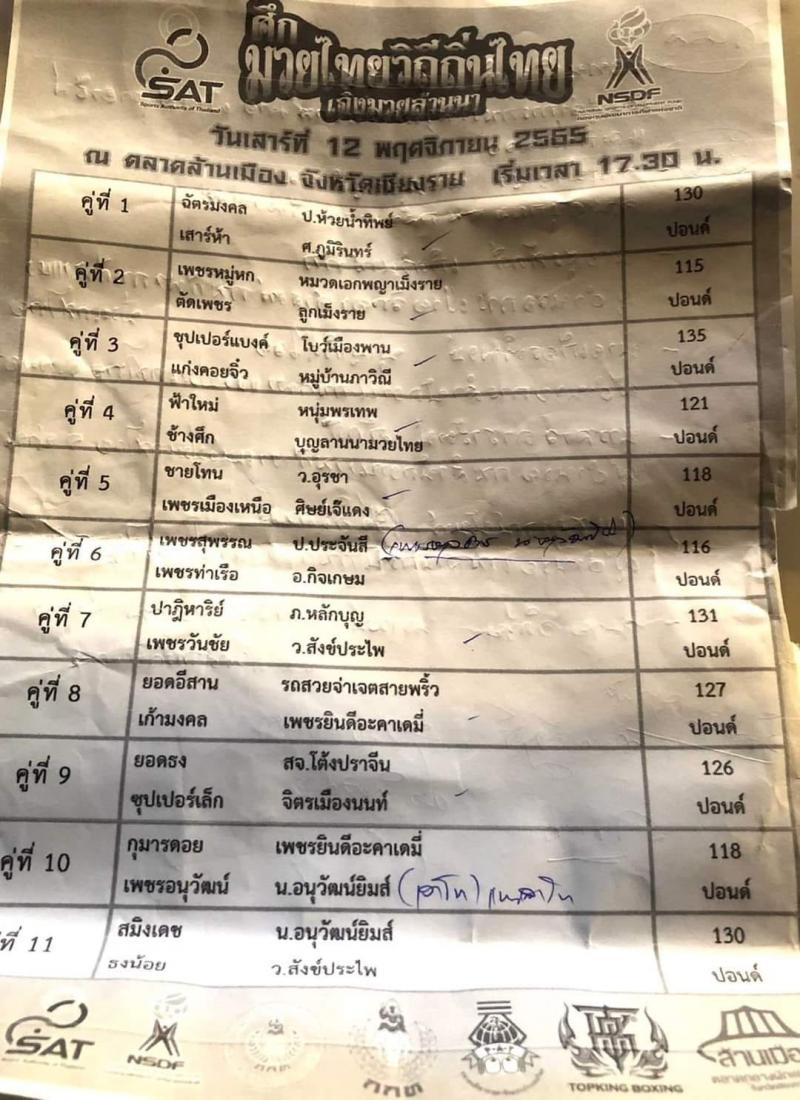 SAT
Sports Authority of Thailand
ศึก
มวยไทยวิถีถิ่นไทย
เชิงมวยล้านนา
NSDF
วันเสาร์ที่ 12 พฤศจิกายน 2565
ณ ตลาดล้านเมือง จังหวัดเชียงราย เริ่มเวลา 17.30 น.
คู่ที่ 1 ฉัตรมงคล ป.ห้วยน้ำทิพย์ 130
เสาร์ห้า ศ.ภูมิรินทร์ ปอนด์
คู่ที่ 2 เพชรหมู่หก หมวดเอกพญาเม็งราย 115
ตัดเพชร ลูกเม็งราย ปอนด์
คู่ที่ 3 ซุปเปอร์แบงค์ โบว์เมืองพาน 135
แก่งคอยจิ๋ว หมู่บ้านภาวิณี ปอนด์
คู่ที่ 4 ฟ้าใหม่ หนุ่มพรเทพ 121
ช้างศึก บุญลานนามวยไทย ปอนด์
คู่ที่ 5 ชายโทน ว.อุรชา 118
เพชรเมืองเหนือ ศิษย์เจ๊แดง ปอนด์
คู่ที่ 6 เพชรสุพรรณ ป.ประจันสี 116
เพชรท่าเรือ อ.กิจเกษม ปอนด์
คู่ที่ 7 ปาฏิหาริย์ ภ.หลักบุญ 131
เพชรวันชัย ว.สังข์ประไพ ปอนด์
คู่ที่ 8 ยอดอีสาน รถสวยจ่าเจตสายพริ้ว 127
เก้ามงคล เพชรยินดีอะคาเดมี่ ปอนด์
คู่ที่ 9 ยอดธง สจ.โต้งปราจีน 126
ซุปเปอร์เล็ก จิตรเมืองนนท์ ปอนด์
คู่ที่ 10 กุมารดอย เพชรยินดีอะคาเดมี่ 118
เพชรอนุวัฒน์ น.อนุวัฒน์ยิมส์ ปอนด์
ที่ 11 สมิงเดช น.อนุวัฒน์ยิมส์ 130
ธงน้อย ว.สังข์ประไพ ปอนด์
SAT NSDF กกท TOPKING BOXING ล้านเมือง